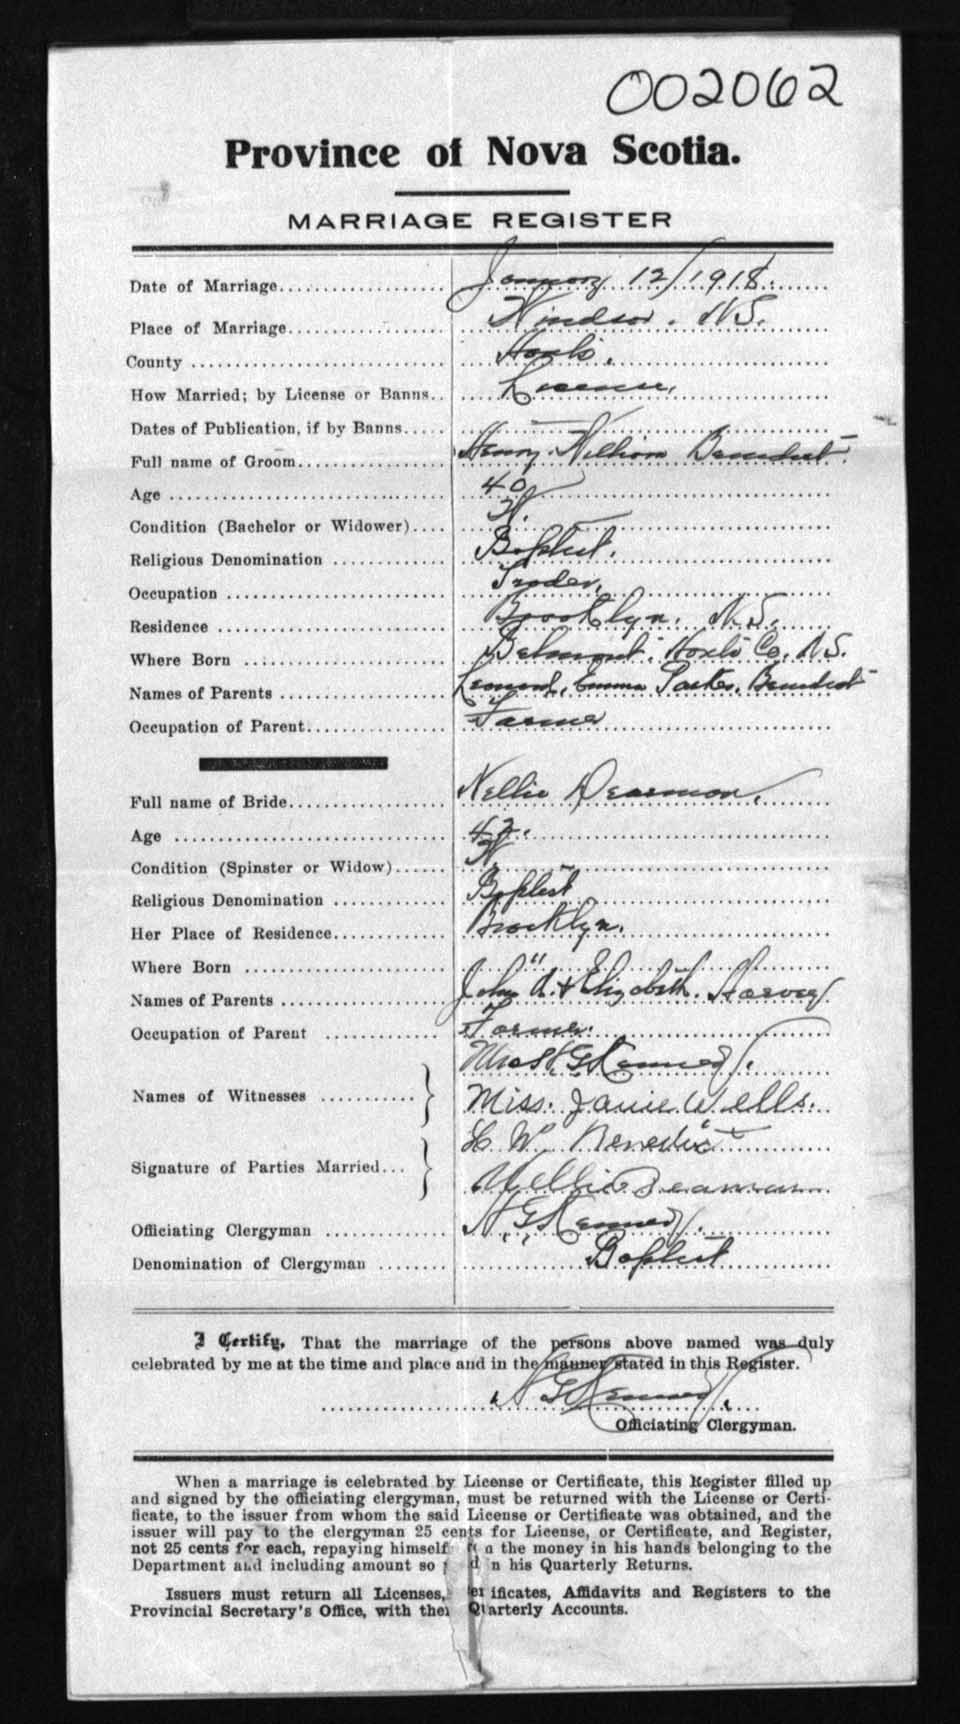 002062
Province of Nova Scotia.
MARRIAGE REGISTER
Date of Marriage January 12/1918.
Place of Marriage Windsor. N.S.
County Hants.
How Married; by License or Banns License.
Dates of Publication, if by Banns —
Full name of Groom Henry William Benedict
Age 40
Condition (Bachelor or Widower) W.
Religious Denomination Baptist.
Occupation Trader.
Residence Brooklyn. N.S.
Where Born Belmont. Hants Co. N.S.
Names of Parents Leonard, Emma Parker. Benedict
Occupation of Parent Farmer
Full name of Bride Nellie Dearmon.
Age 42.
Condition (Spinster or Widow) W.
Religious Denomination Baptist
Her Place of Residence Brooklyn.
Where Born "
Names of Parents John A. & Elizabeth. Harvey
Occupation of Parent Farmer.
Mrs N. G. Kennedy.
Names of Witnesses
Miss. Janie Wells.
H W. Benedict
Signature of Parties Married
Nellie Deaman
Officiating Clergyman N. G. Kennedy.
Denomination of Clergyman Baptist
I Certify, That the marriage of the persons above named was duly
celebrated by me at the time and place and in the manner stated in this Register.
N G Kennedy.
Officiating Clergyman.
When a marriage is celebrated by License or Certificate, this Register filled up
and signed by the officiating clergyman, must be returned with the License or Certi-
ficate, to the issuer from whom the said License or Certificate was obtained, and the
issuer will pay to the clergyman 25 cents for License, or Certificate, and Register,
not 25 cents for each, repaying himself a the money in his hands belonging to the
Department and including amount so n his Quarterly Returns.
Issuers must return all Licenses, er ificates, Affidavits and Registers to the
Provincial Secretary's Office, with their Quarterly Accounts.